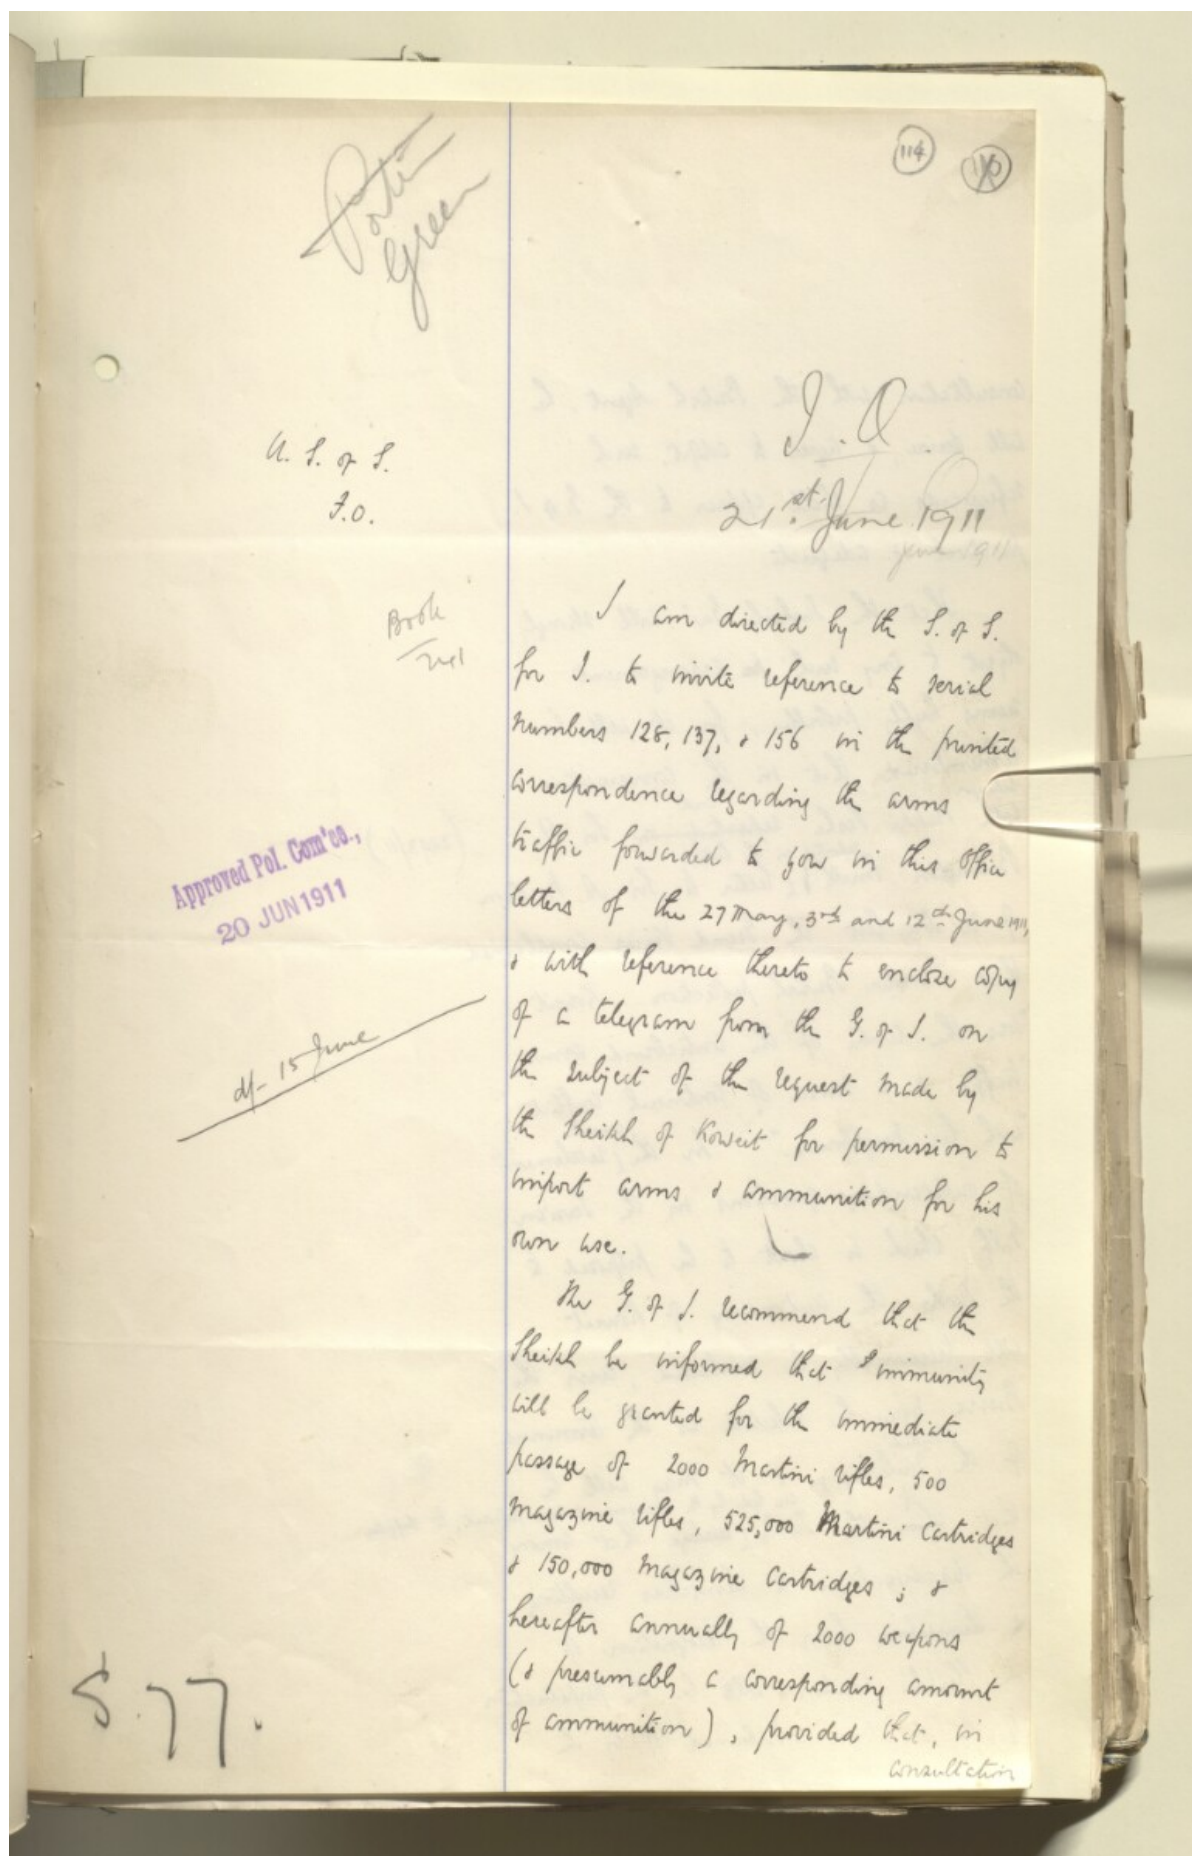 114
Green
U. S. of S.
F.O.
I.O.
21st June 1911
Book
Approved Pol. Com'ee.,
20 JUN 1911
df- 15 June
I am directed by the S. of S.
for I. to invite reference to serial
numbers 128, 137, & 156 in the printed
correspondence regarding the arms
traffic forwarded to you in this Office
letters of the 27 May, 3rd and 12th June 1911,
& with reference thereto to enclose copy
of a telegram from the G. of I. on
the subject of the request made by
the Sheikh of Koweit for permission to
import arms & ammunition for his
own use.
The G. of I. recommend that the
Sheikh be informed that immunity
will be granted for the immediate
passage of 2000 Martini rifles, 500
magazine rifles, 525,000 Martini Cartridges
& 150,000 magazine Cartridges ; &
hereafter annually of 2000 weapons
(& presumably a corresponding amount
of ammunition), provided that, in
consultation
S.77.